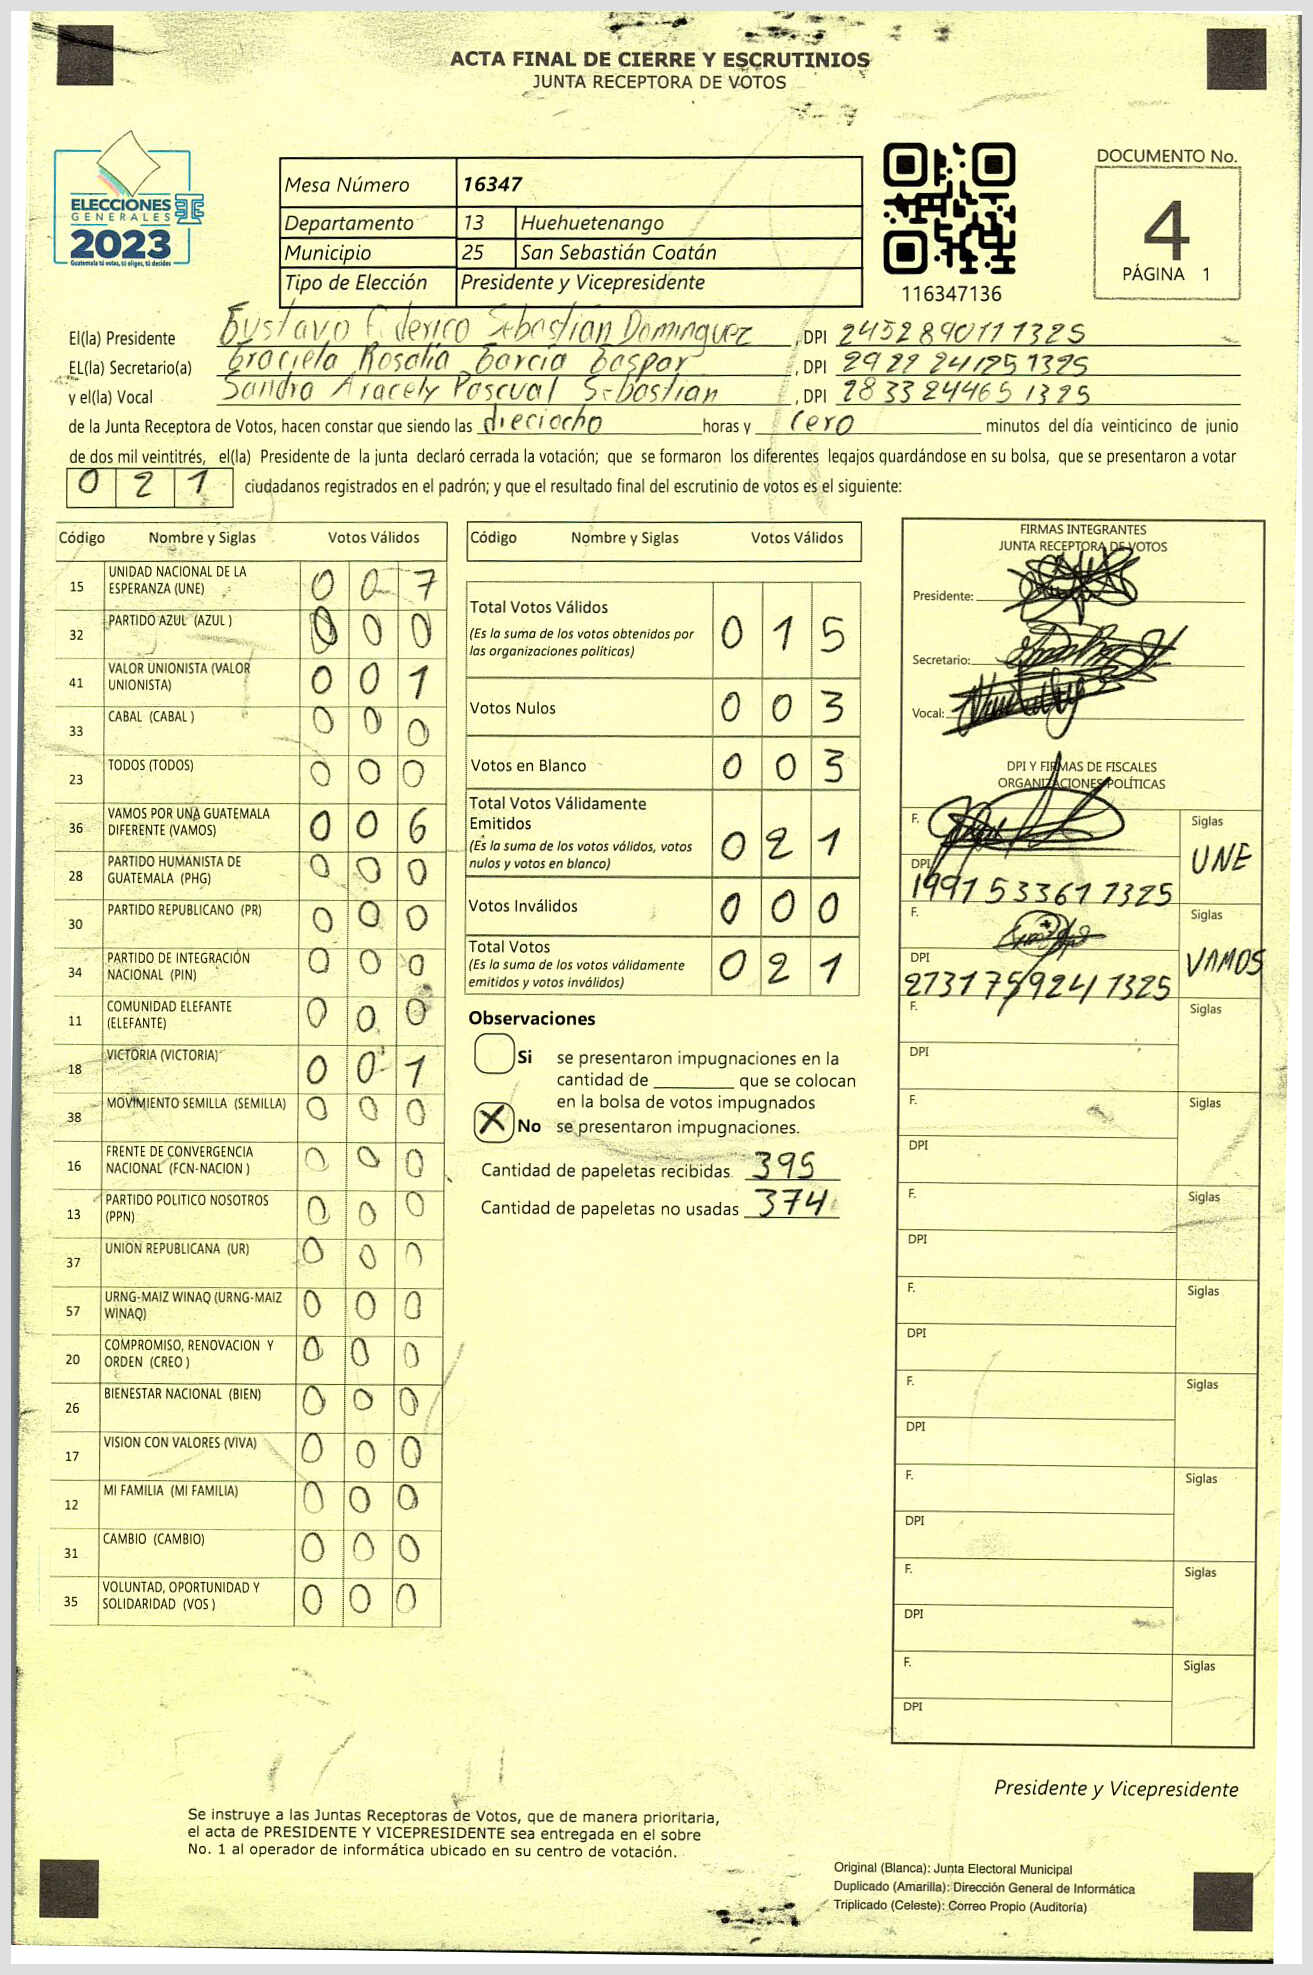 ACTA FINAL DE CIERRE Y ESCRUTINIOS
JUNTA RECEPTORA DE VOTOS
ELECCIONES
GENERALES
2023
Guatemala tú votas, tú eliges, tú decides
Mesa Número 16347
Departamento 13 Huehuetenango
Municipio 25 San Sebastián Coatán
Tipo de Elección Presidente y Vicepresidente
116347136
DOCUMENTO No.
4
PÁGINA 1
El(la) Presidente Gustavo Federico Sebastian Dominguez, DPI 2452890111325
EL(la) Secretario(a) Graciela Rosalía García Gaspar, DPI 2922 24125 1325
y el(la) Vocal Sandra Aracely Pascual Sebastian, DPI 2833 24465 1325
de la Junta Receptora de Votos, hacen constar que siendo las dieciocho horas y cero minutos del día veinticinco de junio
de dos mil veintitrés, el(la) Presidente de la junta declaró cerrada la votación; que se formaron los diferentes legajos guardándose en su bolsa, que se presentaron a votar
0 2 1 ciudadanos registrados en el padrón; y que el resultado final del escrutinio de votos es el siguiente:
Código Nombre y Siglas Votos Válidos
15 UNIDAD NACIONAL DE LA ESPERANZA (UNE) 0 0 7
32 PARTIDO AZUL (AZUL ) 0 0 0
41 VALOR UNIONISTA (VALOR UNIONISTA) 0 0 1
33 CABAL (CABAL ) 0 0 0
23 TODOS (TODOS) 0 0 0
36 VAMOS POR UNA GUATEMALA DIFERENTE (VAMOS) 0 0 6
28 PARTIDO HUMANISTA DE GUATEMALA (PHG) 0 0 0
30 PARTIDO REPUBLICANO (PR) 0 0 0
34 PARTIDO DE INTEGRACIÓN NACIONAL (PIN) 0 0 0
11 COMUNIDAD ELEFANTE (ELEFANTE) 0 0 0
18 VICTORIA (VICTORIA) 0 0 1
38 MOVIMIENTO SEMILLA (SEMILLA) 0 0 0
16 FRENTE DE CONVERGENCIA NACIONAL (FCN-NACION ) 0 0 0
13 PARTIDO POLITICO NOSOTROS (PPN) 0 0 0
37 UNION REPUBLICANA (UR) 0 0 0
57 URNG-MAIZ WINAQ (URNG-MAIZ WINAQ) 0 0 0
20 COMPROMISO, RENOVACION Y ORDEN (CREO ) 0 0 0
26 BIENESTAR NACIONAL (BIEN) 0 0 0
17 VISION CON VALORES (VIVA) 0 0 0
12 MI FAMILIA (MI FAMILIA) 0 0 0
31 CAMBIO (CAMBIO) 0 0 0
35 VOLUNTAD, OPORTUNIDAD Y SOLIDARIDAD (VOS ) 0 0 0
Código Nombre y Siglas Votos Válidos
Total Votos Válidos 0 1 5
(Es la suma de los votos obtenidos por
las organizaciones políticas)
Votos Nulos 0 0 3
Votos en Blanco 0 0 3
Total Votos Válidamente
Emitidos 0 2 1
(Es la suma de los votos válidos, votos
nulos y votos en blanco)
Votos Inválidos 0 0 0
Total Votos 0 2 1
(Es la suma de los votos válidamente
emitidos y votos inválidos)
Observaciones
Si se presentaron impugnaciones en la
cantidad de ________ que se colocan
en la bolsa de votos impugnados
X No se presentaron impugnaciones.
Cantidad de papeletas recibidas 395
Cantidad de papeletas no usadas 374
FIRMAS INTEGRANTES
JUNTA RECEPTORA DE VOTOS
Presidente:
Secretario:
Vocal:
DPI Y FIRMAS DE FISCALES
ORGANIZACIONES POLÍTICAS
F. Siglas UNE
DPI 1991 53361 1325
F. Siglas VAMOS
DPI 2731 75924 1325
F. Siglas
DPI
F. Siglas
DPI
F. Siglas
DPI
F. Siglas
DPI
F. Siglas
DPI
F. Siglas
DPI
F. Siglas
DPI
F. Siglas
DPI
Presidente y Vicepresidente
Se instruye a las Juntas Receptoras de Votos, que de manera prioritaria,
el acta de PRESIDENTE Y VICEPRESIDENTE sea entregada en el sobre
No. 1 al operador de informática ubicado en su centro de votación.
Original (Blanca): Junta Electoral Municipal
Duplicado (Amarilla): Dirección General de Informática
Triplicado (Celeste): Correo Propio (Auditoría)